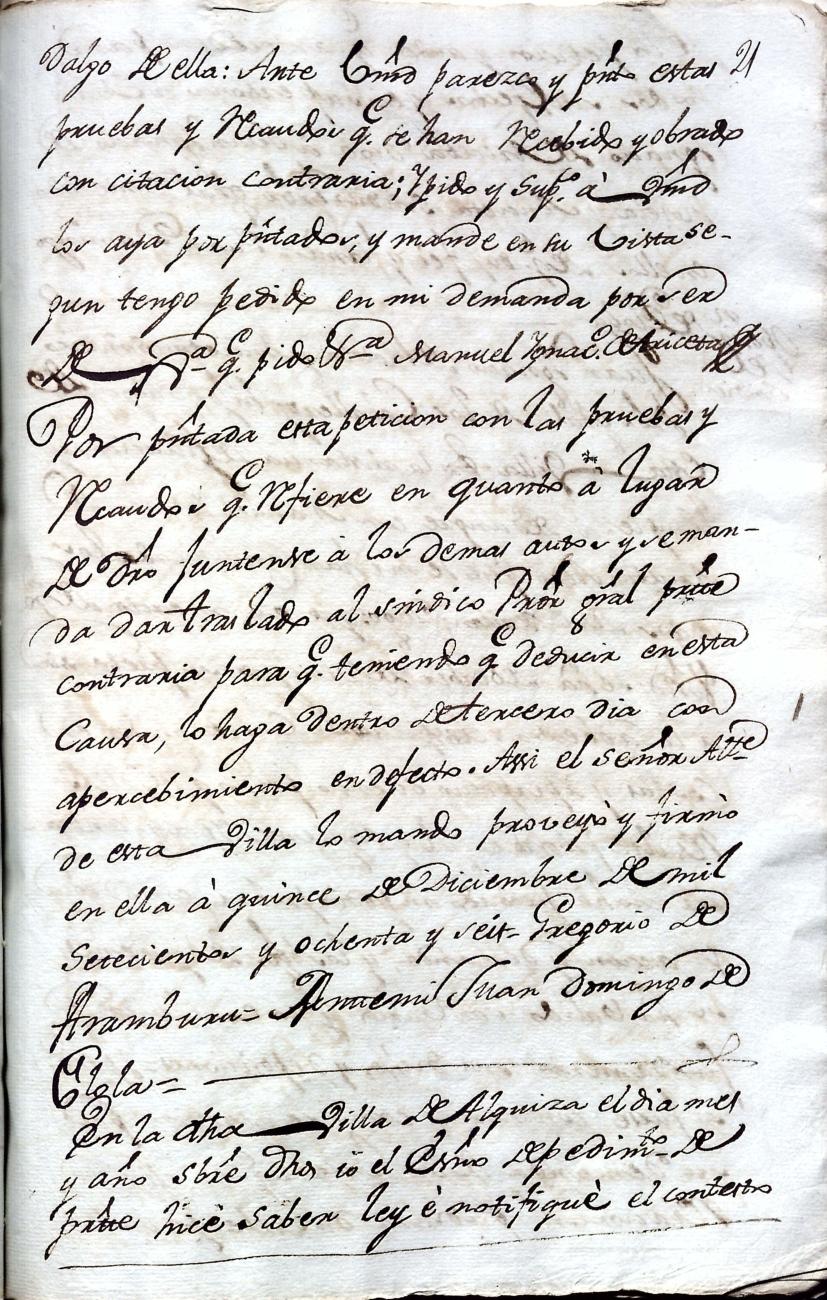 Dalgo de ella: Ante Vmd parezco y pnto estas 21
pruebas y Recaudos q. se han Recebido y obrado
con citacion contraria; Y pido y Supco. à Vmd
los aya por pntados, y mande en su vista se-
gun tengo pedido en mi demanda por ser
de Jª q. pido &ª Manuel Ignaco. de Ariceta
Por pntada esta peticion con las pruebas y
Recaudos q. Refiere en quanto à lugar
de dro Juntense à los demas autos y se man-
da dar traslado al sindico Pror gral prte
contraria para q. teniendo q. deducir en esta
Causa, lo haga dentro de tercero dia con
apercebimiento en defecto. Assi el señor Alte
de esta Villa lo mando proveyò y firmò
en ella à quince de Diciembre de mil
Setecientos y ochenta y séis= Gregorio de
Aramburu= Antemi Juan Domingo de
Elola=
En la dha Villa de Alquiza el dia mes
y año sbre dhos iò el Esno de pedimto de
prte hicè saber ley è notifiquè el contesto